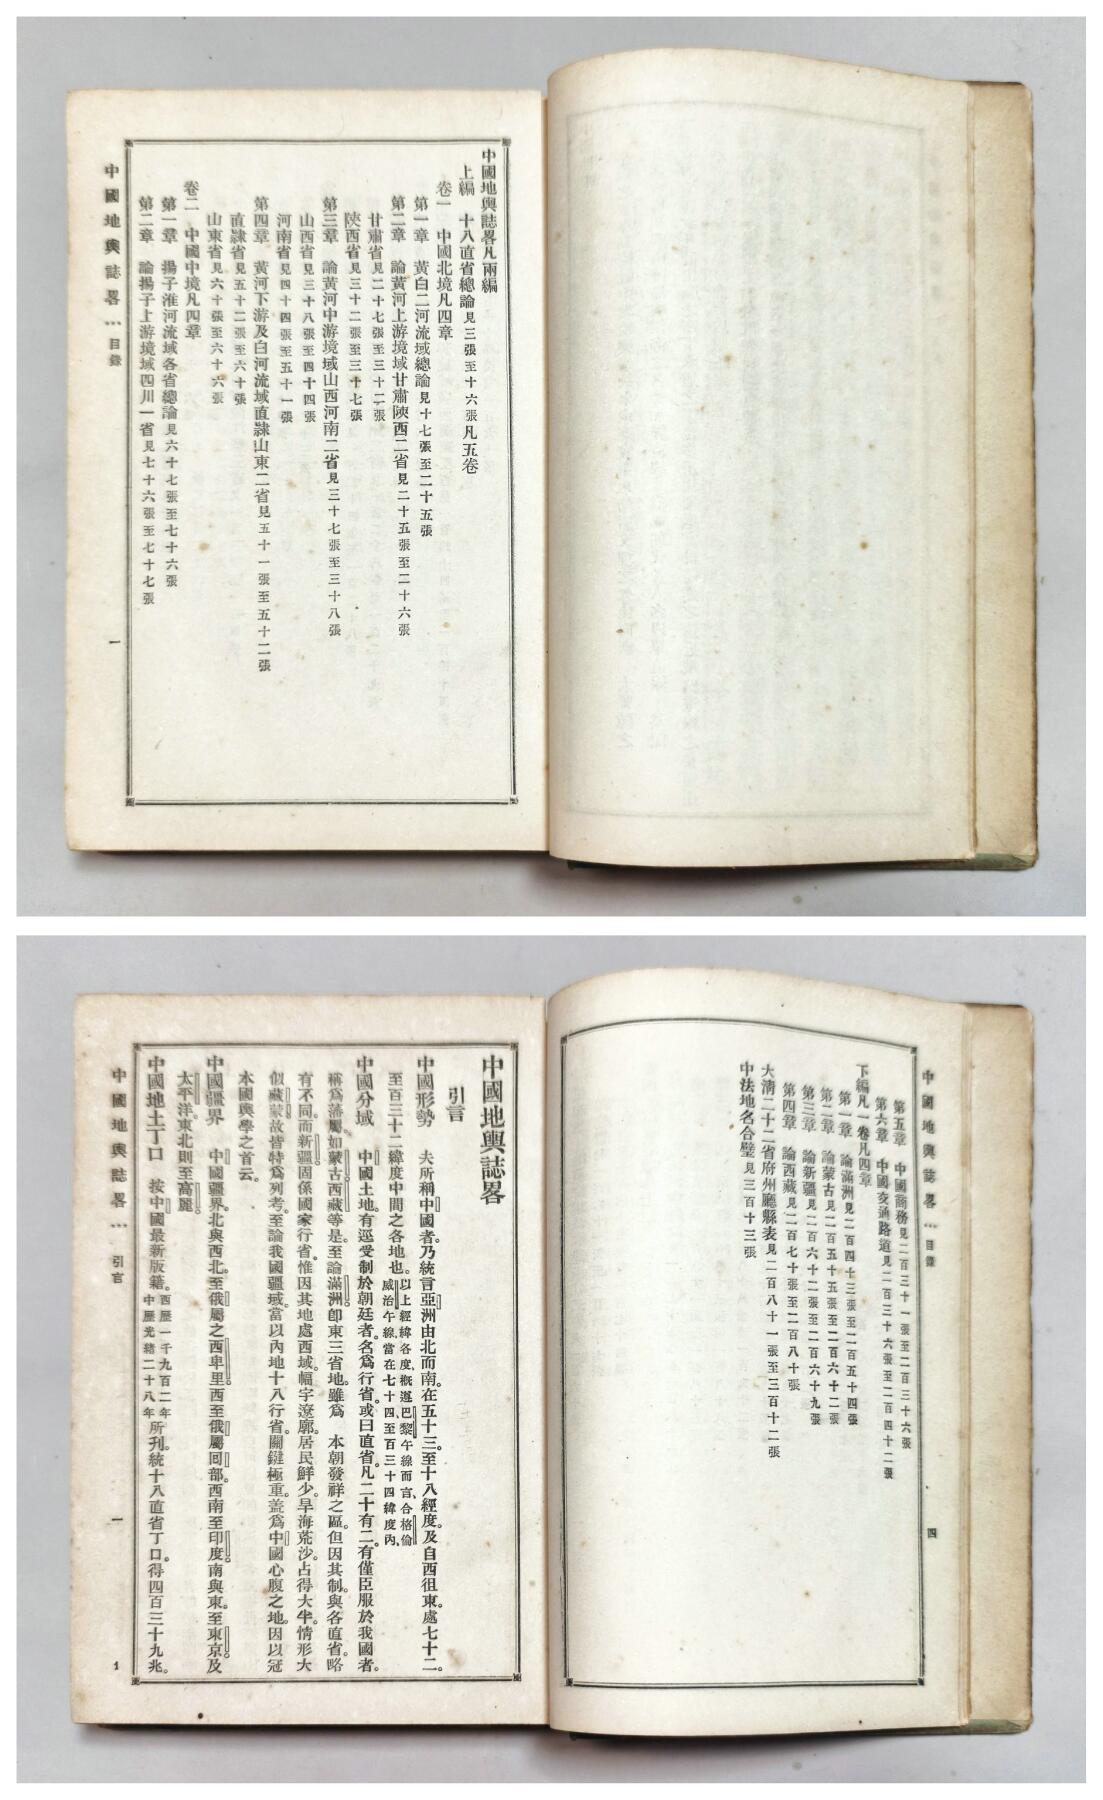 中國地輿誌畧凡兩編
上編　十八直省總論見三張至十六張凡五卷
卷一　中國北境凡四章
第一章　黃白二河流域總論見十七張至二十五張
第二章　論黃河上游境域甘肅陝西二省見二十五張至二十六張
甘肅省見二十七張至三十二張
陝西省見三十二張至三十七張
第三章　論黃河中游境域山西河南二省見三十七張至三十八張
山西省見三十八張至四十四張
河南省見四十四張至五十一張
第四章　黃河下游及白河流域直隸山東二省見五十一張至五十二張
直隸省見五十二張至六十張
山東省見六十張至六十六張
卷二　中國中境凡四章
第一章　揚子淮河流域各省總論見六十七張至七十六張
第二章　論揚子上游境域四川一省見七十六張至七十七張
中國地輿誌畧…目錄　一
中國地輿誌畧…目錄　四
第五章　中國商務見二百三十一張至二百三十六張
第六章　中國交通路道見二百三十六張至二百四十二張
下編凡一卷凡四章
第一章　論滿洲見二百四十三張至二百五十四張
第二章　論蒙古見二百五十五張至二百六十二張
第三章　論新疆見二百六十二張至二百六十九張
第四章　論西藏見二百七十張至二百八十張
大淸二十二省府州廳縣表見二百八十一張至三百十二張
中法地名合璧見三百十三張
中國地輿誌畧
引言
中國形勢　夫所稱中國者。乃統言亞洲由北而南。在五十三至十八經度。及自西徂東。處七十二。
至百三十二緯度中間之各地也。以上經緯各度、槪遵巴黎午線而言、合格倫威治午線、當在七十四、至百三十四緯度內、
中國分域　中國土地。有逕受制於朝廷者。名爲行省。或曰直省。凡二十有二。有僅臣服於我國者。
稱爲藩屬。如蒙古西藏等是。至論滿洲。卽東三省地。雖爲　本朝發祥之區。但因其制與各直省。略
有不同。而新疆固係國家行省。惟因其地處西域。幅宇遼廓。居民鮮少。旱海荒沙。占得大半。情形大
似藏蒙。故皆特爲列考。至論我國疆域。當以內地十八行省。關鍵極重。蓋爲中國心腹之地。因以冠
本國輿學之首云。
中國疆界　中國疆界。北與西北。至俄屬之西卑里。西至俄屬回部。西南至印度。南與東。至東京及
太平洋。東北則至高麗
中國地土丁口　按中國最新版籍。西歷一千九百二年中歷光緒二十八年所刊。統十八直省丁口。得四百三十九兆。
中國地輿誌畧…引言　一　1